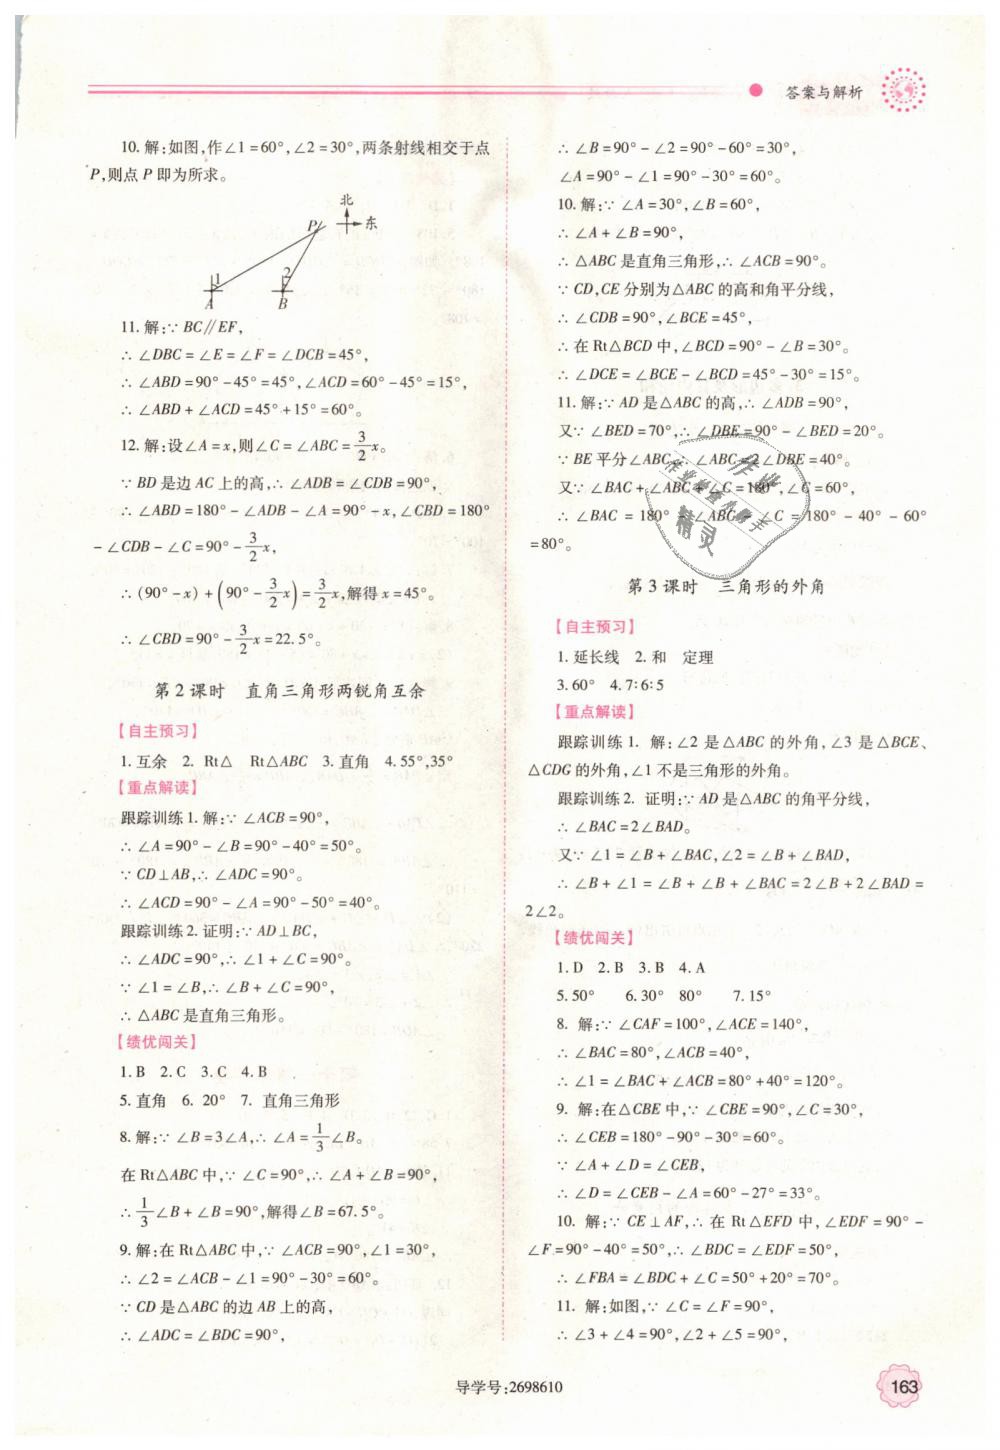 答案与解析
10. 解:如图,作∠1=60°,∠2=30°,两条射线相交于点
P,则点 P 即为所求。
北
P 东
1 2
A B
11. 解:∵ BC∥EF,
∴ ∠DBC=∠E=∠F=∠DCB=45°,
∴ ∠ABD=90°-45°=45°,∠ACD=60°-45°=15°,
∴ ∠ABD+∠ACD=45°+15°=60°。
12. 解:设∠A=x,则∠C=∠ABC=3/2x。
∵ BD 是边 AC 上的高,∴ ∠ADB=∠CDB=90°,
∴ ∠ABD=180°-∠ADB-∠A=90°-x,∠CBD=180°
-∠CDB-∠C=90°-3/2x,
∴ (90°-x)+(90°-3/2x)=3/2x,解得 x=45°。
∴ ∠CBD=90°-3/2x=22.5°。
第 2 课时 直角三角形两锐角互余
【自主预习】
1. 互余 2. Rt△ Rt△ABC 3. 直角 4. 55°,35°
【重点解读】
跟踪训练 1. 解:∵ ∠ACB=90°,
∴ ∠A=90°-∠B=90°-40°=50°。
∵ CD⊥AB,∴ ∠ADC=90°。
∴ ∠ACD=90°-∠A=90°-50°=40°。
跟踪训练 2. 证明:∵ AD⊥BC,
∴ ∠ADC=90°,∴ ∠1+∠C=90°。
∵ ∠1=∠B,∴ ∠B+∠C=90°,
∴ △ABC 是直角三角形。
【绩优闯关】
1. B 2. C 3. C 4. B
5. 直角 6. 20° 7. 直角三角形
8. 解:∵ ∠B=3∠A,∴ ∠A=1/3∠B。
在 Rt△ABC 中,∵ ∠C=90°,∴ ∠A+∠B=90°,
∴ 1/3∠B+∠B=90°,解得∠B=67.5°。
9. 解:在 Rt△ABC 中,∵ ∠ACB=90°,∠1=30°,
∴ ∠2=∠ACB-∠1=90°-30°=60°。
∵ CD 是△ABC 的边 AB 上的高,
∴ ∠ADC=∠BDC=90°,
∴ ∠B=90°-∠2=90°-60°=30°,
∠A=90°-∠1=90°-30°=60°。
10. 解:∵ ∠A=30°,∠B=60°,
∴ ∠A+∠B=90°,
∴ △ABC 是直角三角形,∴ ∠ACB=90°。
∵ CD,CE 分别为△ABC 的高和角平分线,
∴ ∠CDB=90°,∠BCE=45°,
∴ 在 Rt△BCD 中,∠BCD=90°-∠B=30°。
∴ ∠DCE=∠BCE-∠BCD=45°-30°=15°。
11. 解:∵ AD 是△ABC 的高,∴ ∠ADB=90°,
又∵ ∠BED=70°,∴ ∠DBE=90°-∠BED=20°。
∵ BE 平分∠ABC,∴ ∠ABC=2∠DBE=40°。
又∵ ∠BAC+∠ABC+∠C=180°,∠C=60°,
∴ ∠BAC=180°-∠ABC-∠C=180°-40°-60°
=80°。
作业
作业检查小助手
精灵
第 3 课时 三角形的外角
【自主预习】
1. 延长线 2. 和 定理
3. 60° 4. 7:6:5
【重点解读】
跟踪训练 1. 解:∠2 是△ABC 的外角,∠3 是△BCE、
△CDG 的外角,∠1 不是三角形的外角。
跟踪训练 2. 证明:∵ AD 是△ABC 的角平分线,
∴ ∠BAC=2∠BAD。
又∵ ∠1=∠B+∠BAC,∠2=∠B+∠BAD,
∴ ∠B+∠1=∠B+∠B+∠BAC=2∠B+2∠BAD=
2∠2。
【绩优闯关】
1. D 2. B 3. B 4. A
5. 50° 6. 30° 80° 7. 15°
8. 解:∵ ∠CAF=100°,∠ACE=140°,
∴ ∠BAC=80°,∠ACB=40°,
∴ ∠1=∠BAC+∠ACB=80°+40°=120°。
9. 解:在△CBE 中,∵ ∠CBE=90°,∠C=30°,
∴ ∠CEB=180°-90°-30°=60°。
∵ ∠A+∠D=∠CEB,
∴ ∠D=∠CEB-∠A=60°-27°=33°。
10. 解:∵ CE⊥AF,∴ 在 Rt△EFD 中,∠EDF=90°-
∠F=90°-40°=50°,∴ ∠BDC=∠EDF=50°,
∴ ∠FBA=∠BDC+∠C=50°+20°=70°。
11. 解:如图,∵ ∠C=∠F=90°,
∴ ∠3+∠4=90°,∠2+∠5=90°,
导学号:2698610
163